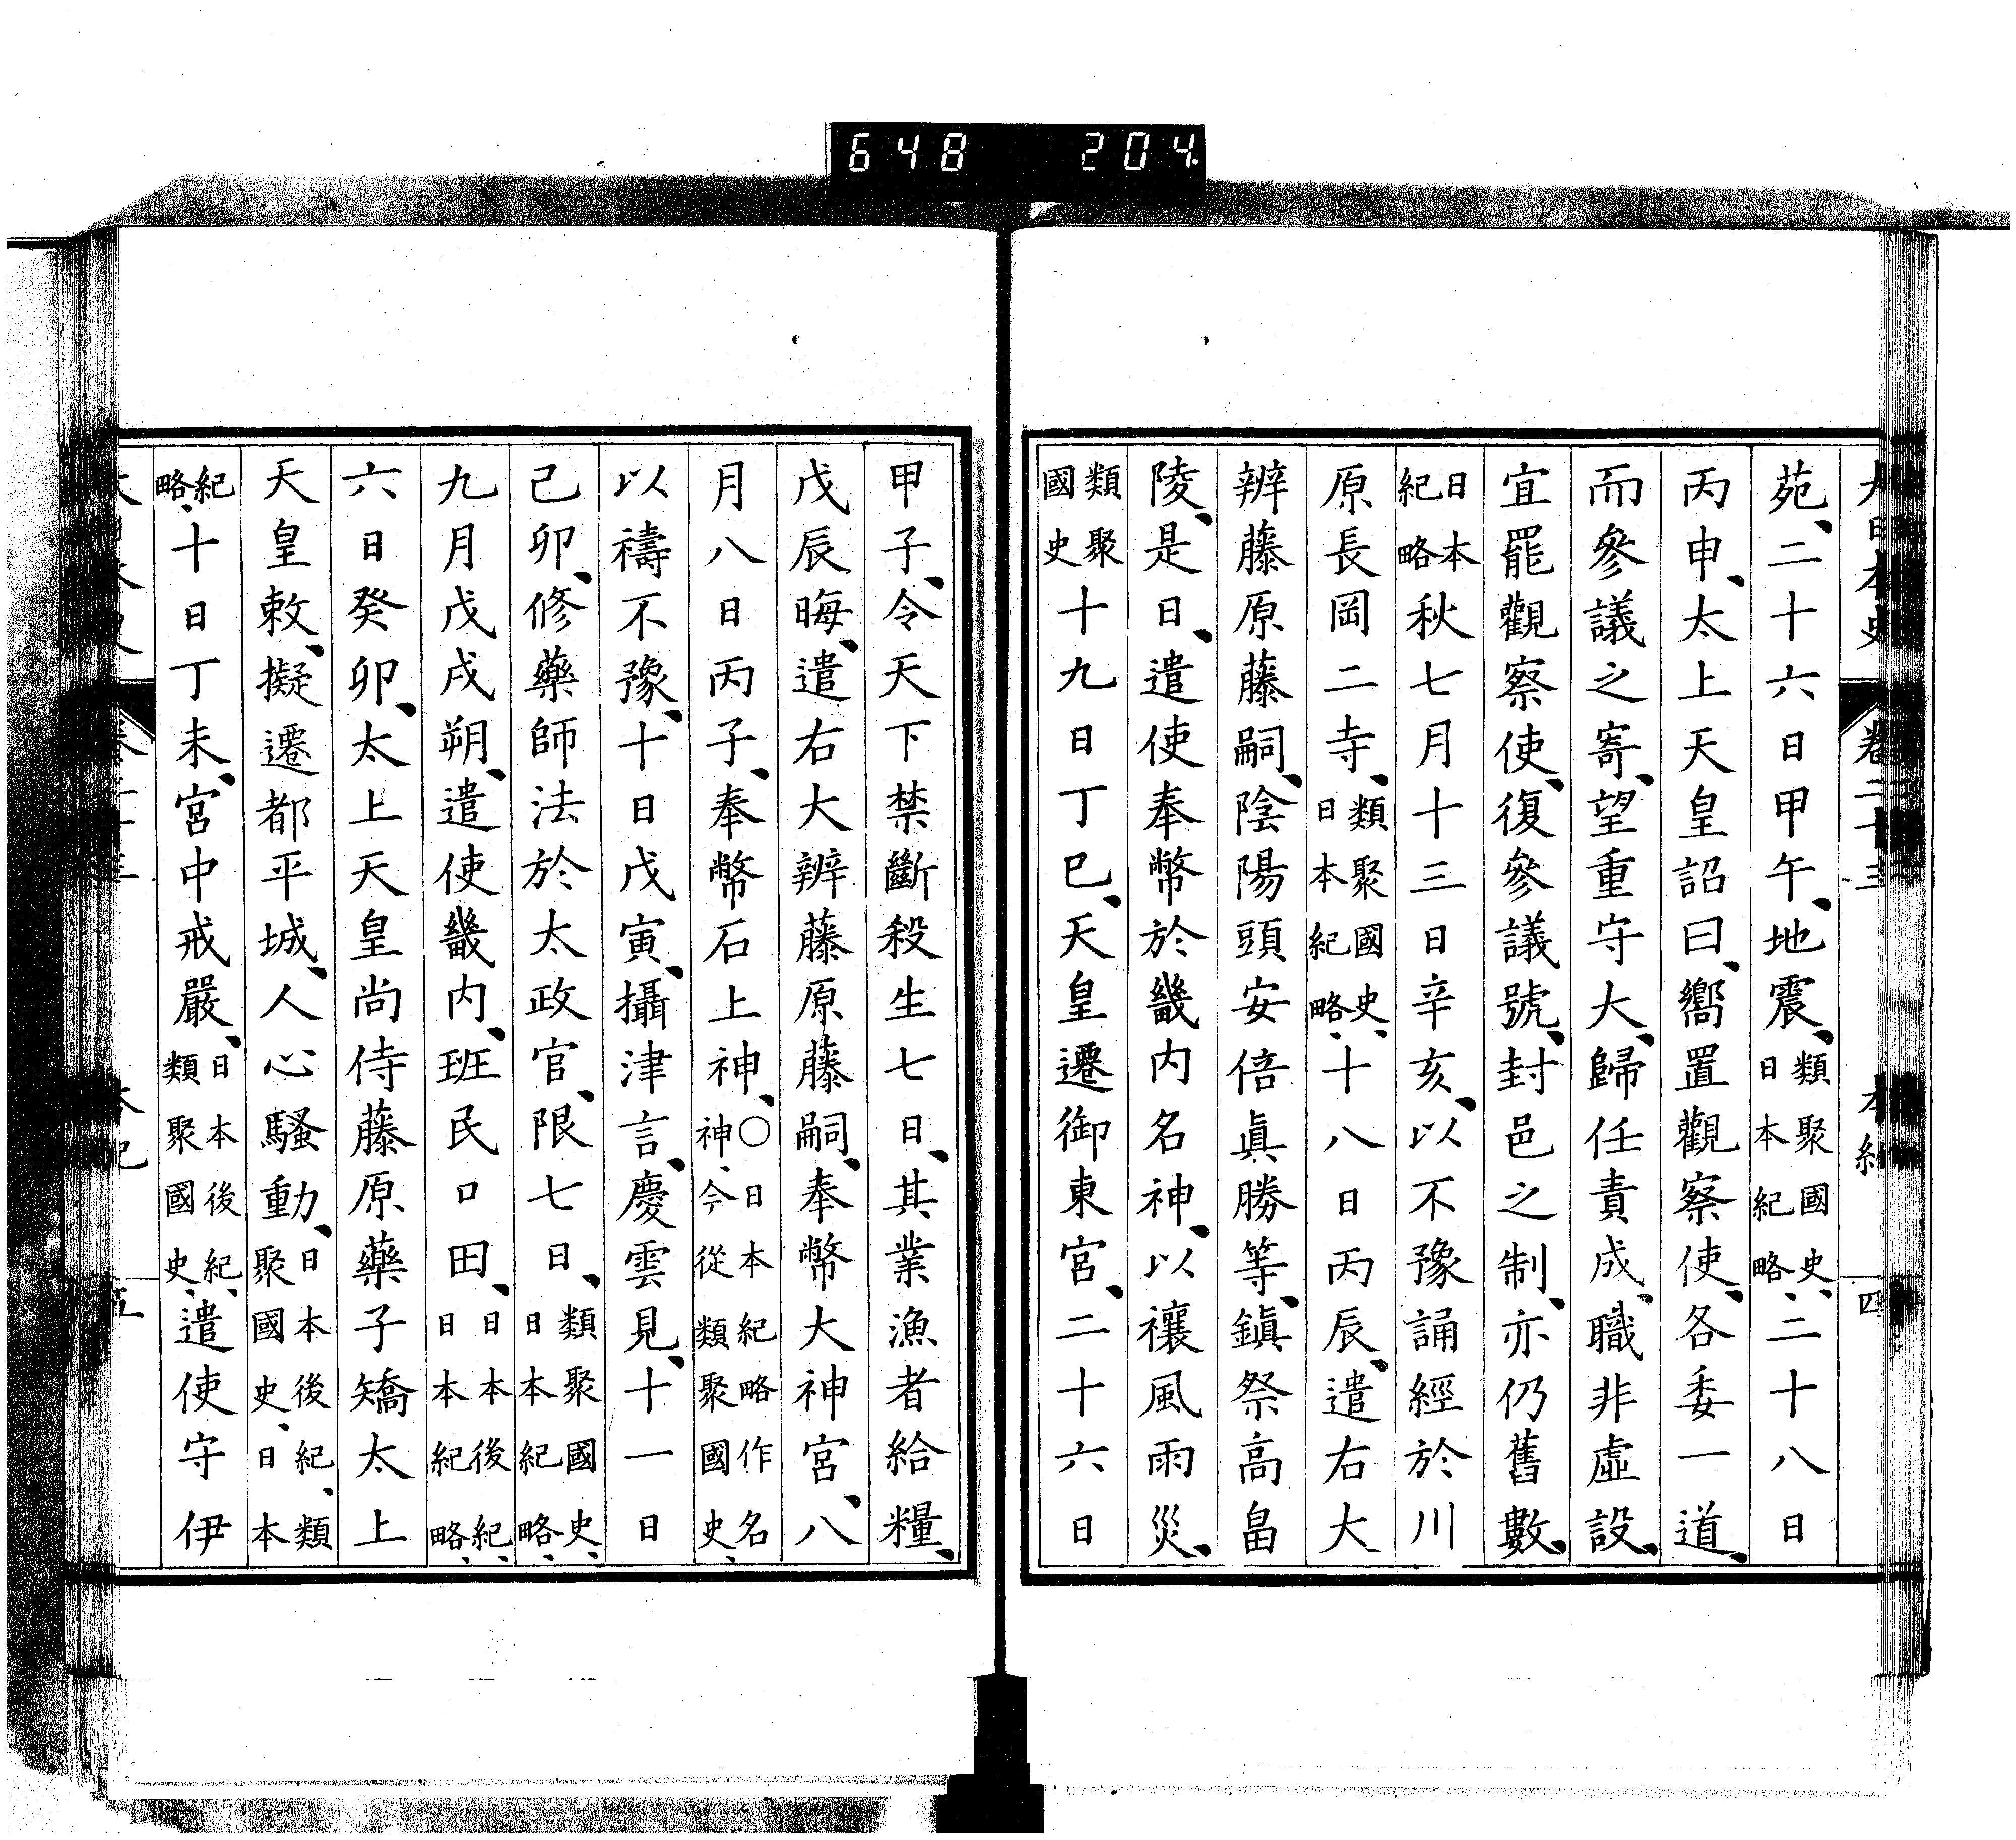 648 204
大日本史 卷二十三 本紀 四
苑、二十六日甲午、地震、類聚國史、日本紀略、二十八日
丙申、太上天皇詔曰、嚮置觀察使、各委一道、
而參議之寄、望重守大、歸任責成、職非虛設、
宜罷觀察使、復參議號、封邑之制、亦仍舊數、
日本紀略秋七月十三日辛亥、以不豫誦經於川
原長岡二寺、類聚國史、日本紀略、十八日丙辰、遣右大
辨藤原藤嗣、陰陽頭安倍眞勝等、鎭祭高畠
陵、是日、遣使奉幣於畿内名神、以禳風雨災、
類聚國史十九日丁巳、天皇遷御東宮、二十六日
甲子、令天下禁斷殺生七日、其業漁者給糧、
戊辰晦、遣右大辨藤原藤嗣、奉幣大神宮、八
月八日丙子、奉幣石上神、〇日本紀略作名神、今從類聚國史、
以禱不豫、十日戊寅、攝津言、慶雲見、十一日
己卯、修藥師法於太政官、限七日、類聚國史、日本紀略、
九月戊戌朔、遣使畿内、班民口田、日本後紀、日本紀略、
六日癸卯、太上天皇尚侍藤原藥子矯太上
天皇敕、擬遷都平城、人心騷動、日本後紀、類聚國史、日本
紀略、十日丁未、宮中戒嚴、日本後紀、類聚國史、遣使守伊